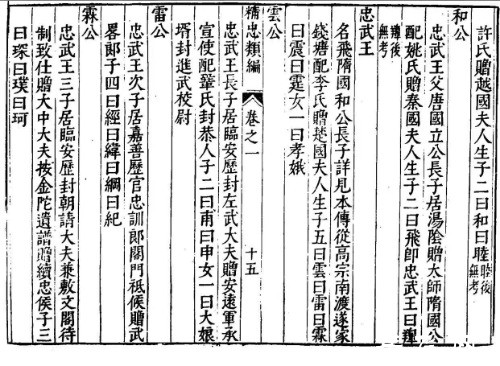 許氏贈越國夫人生子二曰和曰睦睦後無考
和公
忠武王父唐國立公長子居湯陰贈大師隋國公
配姚氏贈秦國夫人生子二曰飛即忠武王曰後無考
忠武王
名飛隋國和公長子詳見本傳從高宗南渡遂家
錢塘配李氏贈國夫人生子五曰雲曰雷曰霖
曰震曰霆女一曰孝娥
雲公
精忠類編 卷之一 十五
忠武王長子居臨安歷封左武大夫贈安遠軍承
宣使配鞏氏封恭人子二曰甫曰申女一曰大娘
壻封進武校尉
雷公
忠武王次子居嘉善歷官忠訓郎閣門祗候贈武
畧郎子四曰經曰緯曰綱曰紀
霖公
忠武王三子居臨安歷封朝請大夫兼敷文閣待
制致仕贈大中大夫按金陀遺譜贈續忠侯子三
曰琛曰璞曰珂